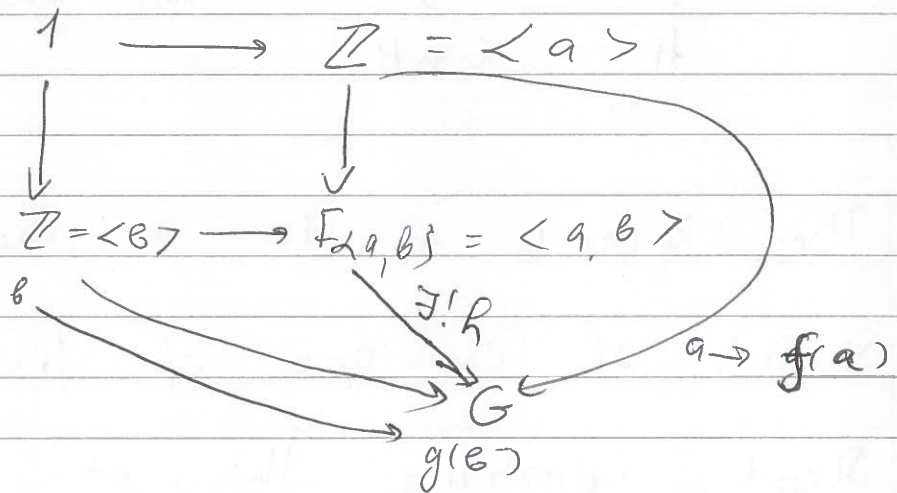 1 → ℤ = <a>
ℤ = <b> → F{a,b} = <a, b>
b
∃! h
a → f(a)
G
g(b)